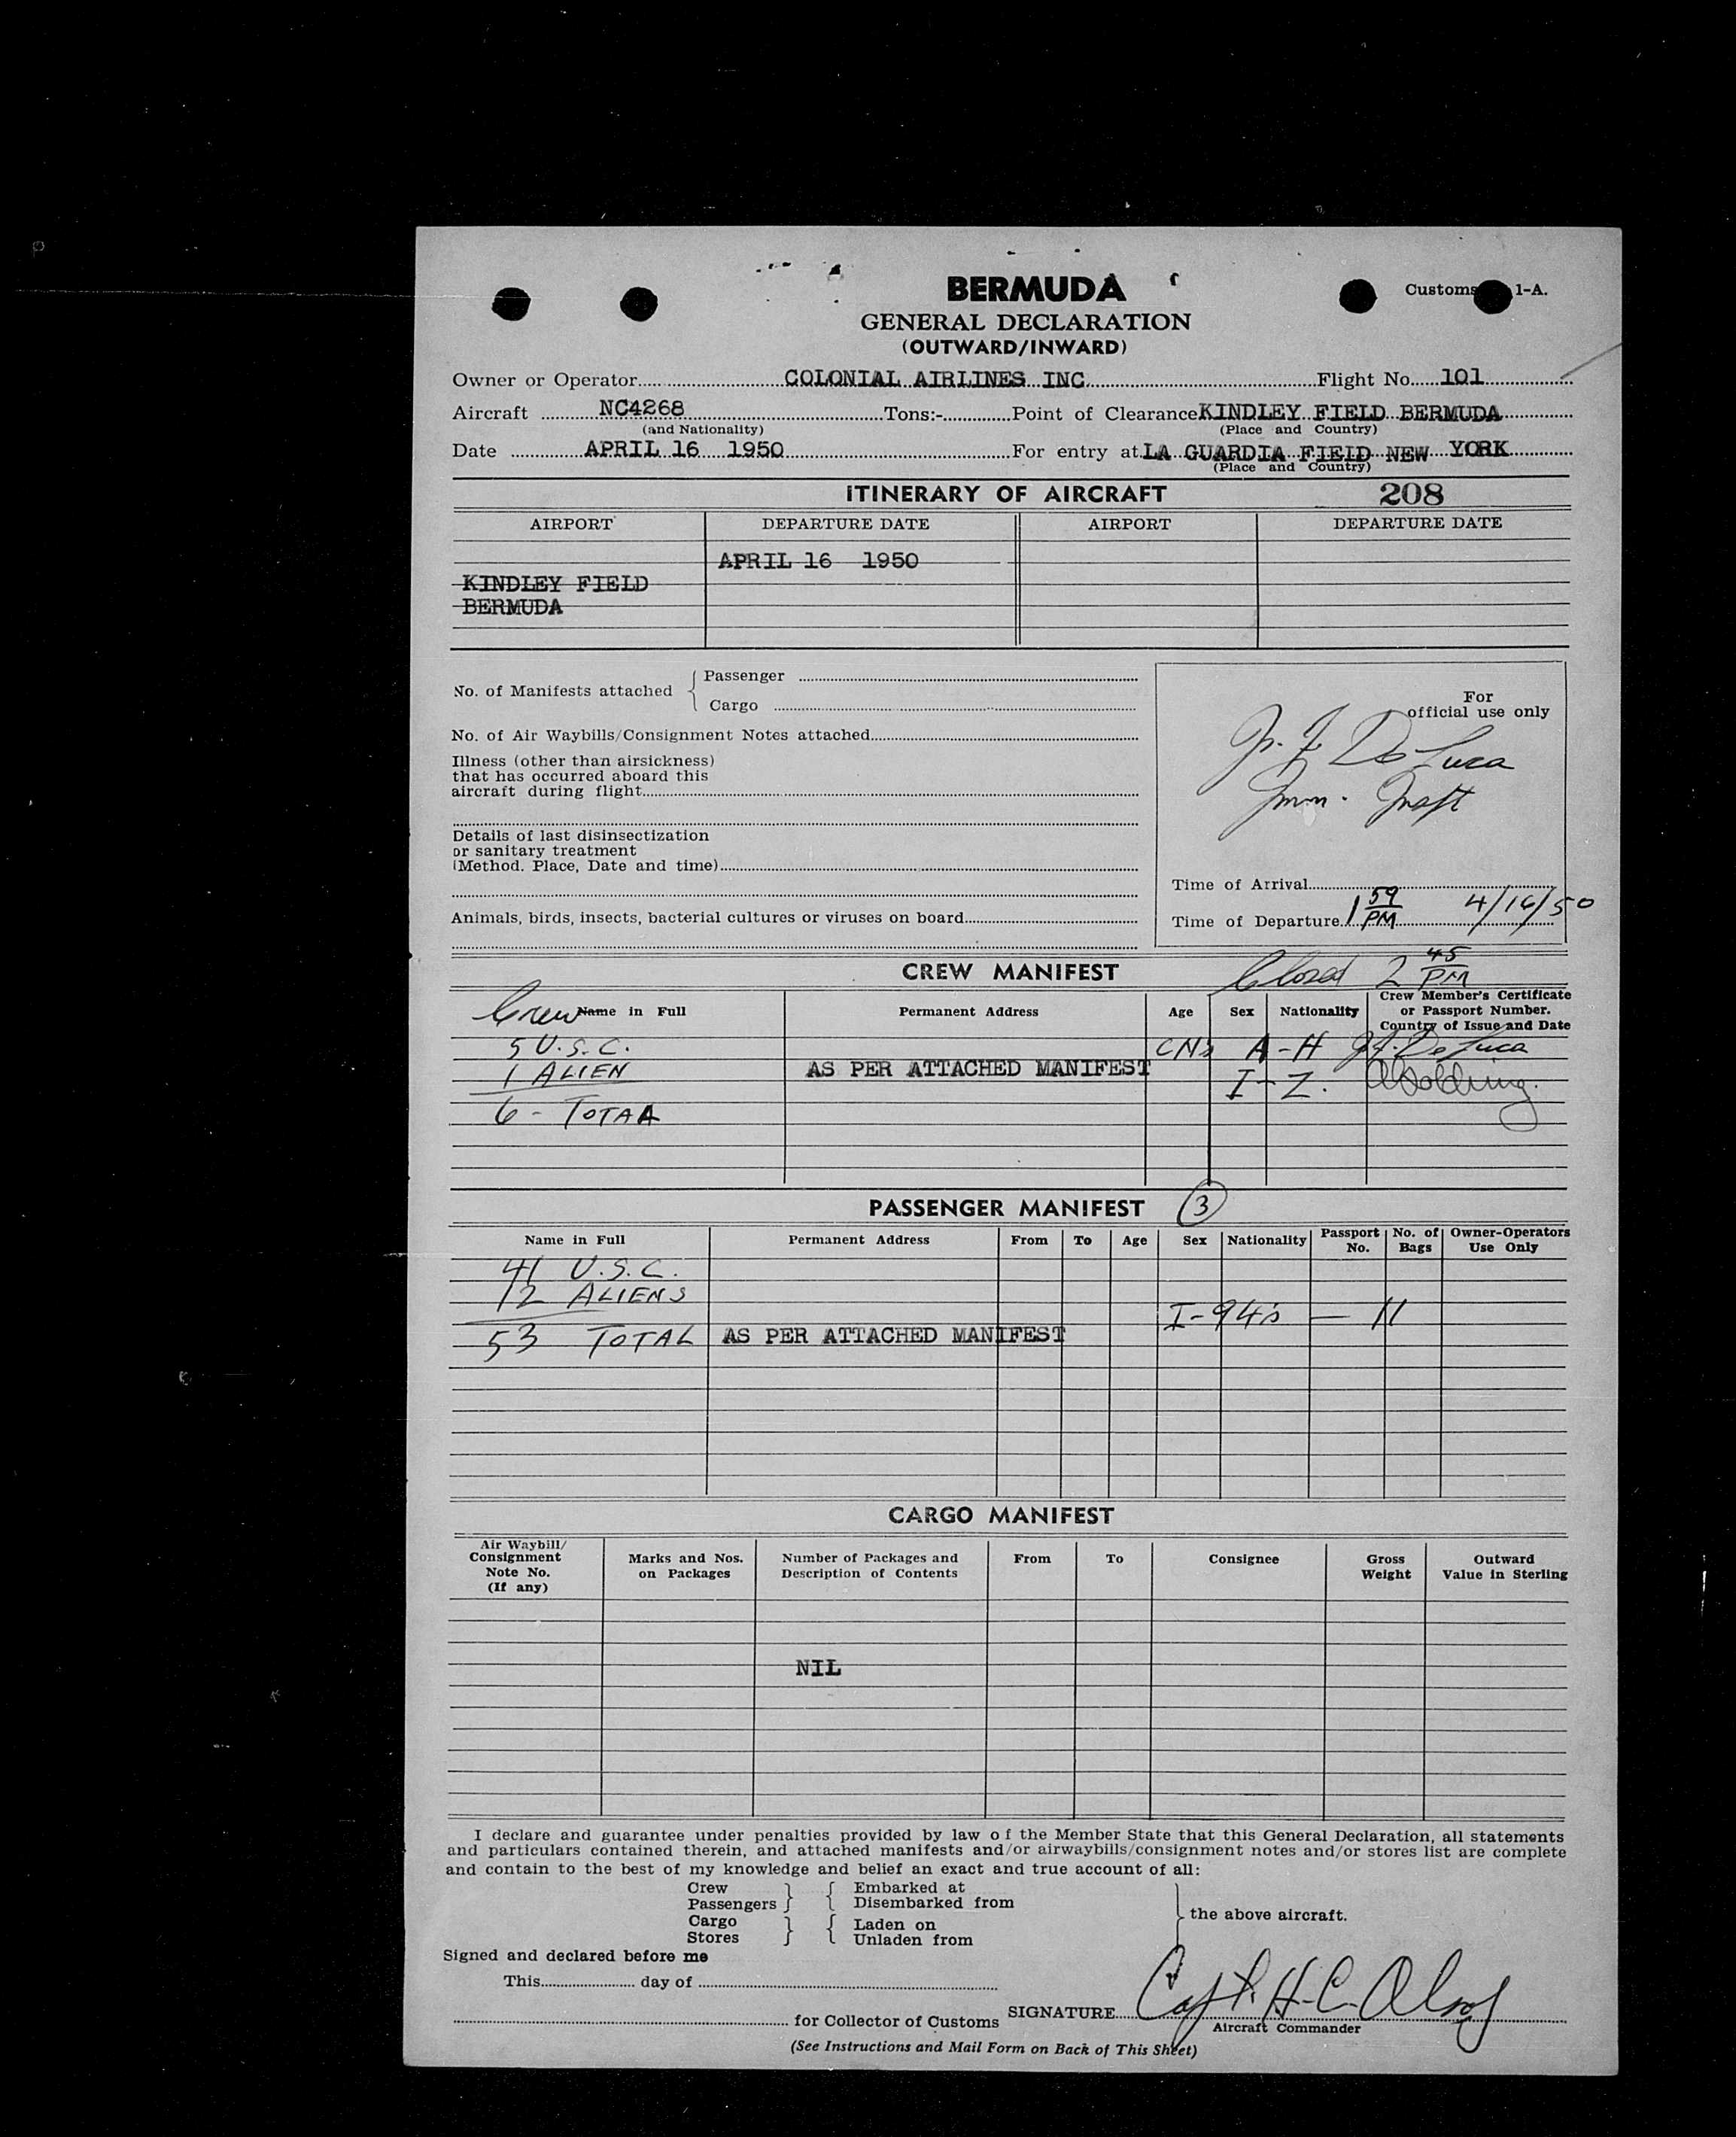 BERMUDA
Customs 1-A.
GENERAL DECLARATION
(OUTWARD/INWARD)
Owner or Operator COLONIAL AIRLINES INC Flight No. 101
Aircraft NC4268 Tons:- Point of Clearance KINDLEY FIELD BERMUDA
(and Nationality) (Place and Country)
Date APRIL 16 1950 For entry at LA GUARDIA FIELD NEW YORK
(Place and Country)
ITINERARY OF AIRCRAFT 208
AIRPORT DEPARTURE DATE AIRPORT DEPARTURE DATE
APRIL 16 1950
KINDLEY FIELD
BERMUDA
No. of Manifests attached { Passenger
Cargo
No. of Air Waybills/Consignment Notes attached
Illness (other than airsickness)
that has occurred aboard this
aircraft during flight
Details of last disinsectization
or sanitary treatment
(Method. Place, Date and time)
Animals, birds, insects, bacterial cultures or viruses on board
For
official use only
J. F. De Luca
Imm. Insp't
Time of Arrival
Time of Departure 1 59 PM 4/16/50
Closed 2 45 PM
CREW MANIFEST
Crew Name in Full Permanent Address Age Sex Nationality Crew Member's Certificate
or Passport Number.
Country of Issue and Date
5 U.S.C. CNs A-H J.F. De Luca
1 ALIEN AS PER ATTACHED MANIFEST I-Z.
6 - TOTAL
PASSENGER MANIFEST 3
Name in Full Permanent Address From To Age Sex Nationality Passport No. No. of Bags Owner-Operators Use Only
41 U.S.C.
12 ALIENS
I-94's — 11
53 TOTAL AS PER ATTACHED MANIFEST
CARGO MANIFEST
Air Waybill/
Consignment
Note No.
(If any)
Marks and Nos.
on Packages
Number of Packages and
Description of Contents
From To Consignee
Gross
Weight
Outward
Value in Sterling
NIL
I declare and guarantee under penalties provided by law of the Member State that this General Declaration, all statements
and particulars contained therein, and attached manifests and/or airwaybills/consignment notes and/or stores list are complete
and contain to the best of my knowledge and belief an exact and true account of all:
Crew } { Embarked at
Passengers } { Disembarked from
Cargo } { Laden on
Stores } { Unladen from
} the above aircraft.
Signed and declared before me
This day of
for Collector of Customs SIGNATURE Capt. H. C.
Aircraft Commander
(See Instructions and Mail Form on Back of This Sheet)